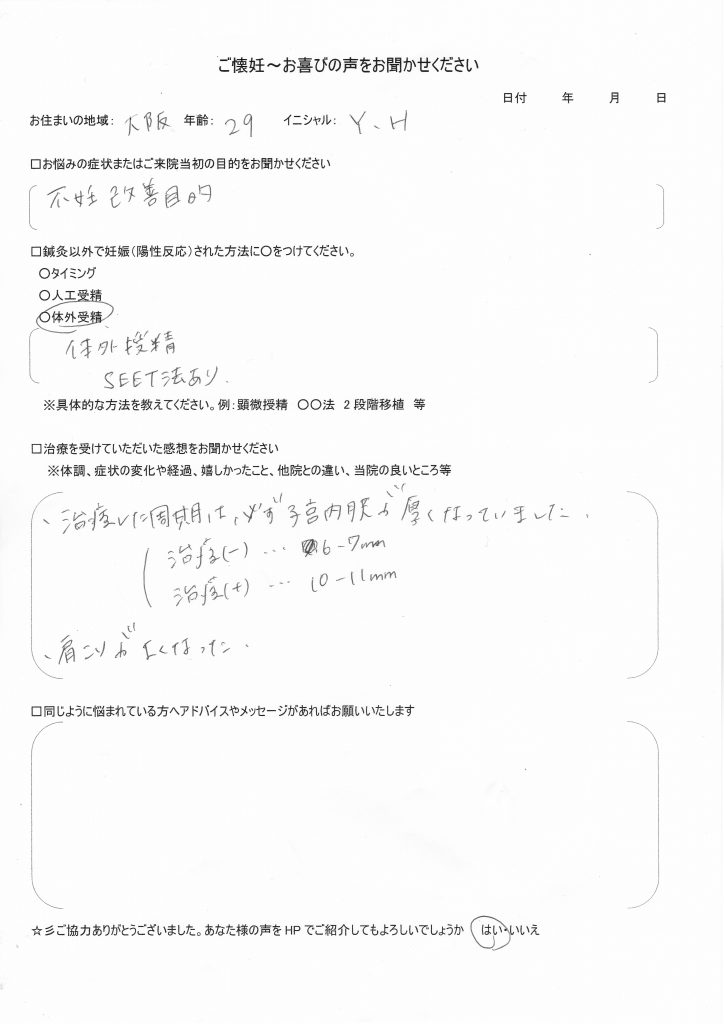 ご懐妊～お喜びの声をお聞かせください
日付 年 月 日
お住まいの地域: 大阪 年齢: 29 イニシャル: Y、H
□お悩みの症状またはご来院当初の目的をお聞かせください
不妊改善目的
□鍼灸以外で妊娠(陽性反応)された方法に〇をつけてください。
〇タイミング
〇人工受精
〇体外受精
体外授精
SEET法あり.
※具体的な方法を教えてください。例:顕微授精 〇〇法 2段階移植 等
□治療を受けていただいた感想をお聞かせください
※体調、症状の変化や経過、嬉しかったこと、他院との違い、当院の良いところ等
、治療した周期は、必ず子宮内膜が厚くなっていました、
治療(-) … 6-7mm
治療(+) … 10-11mm
、肩こりが亡くなった、
□同じように悩まれている方へアドバイスやメッセージがあればお願いいたします
☆彡ご協力ありがとうございました。あなた様の声をHPでご紹介してもよろしいでしょうか はい・いいえ